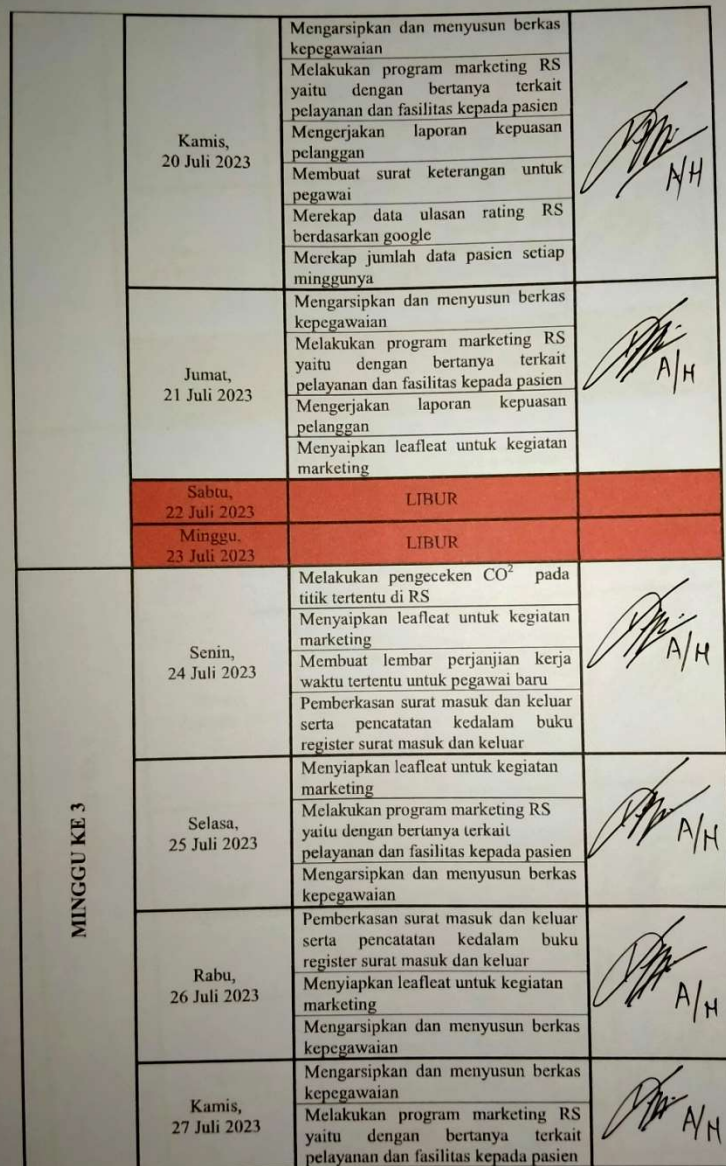 Kamis,
20 Juli 2023
Mengarsipkan dan menyusun berkas
kepegawaian
Melakukan program marketing RS
yaitu dengan bertanya terkait
pelayanan dan fasilitas kepada pasien
Mengerjakan laporan kepuasan
pelanggan
Membuat surat keterangan untuk
pegawai
Merekap data ulasan rating RS
berdasarkan google
Merekap jumlah data pasien setiap
minggunya
A/H
Jumat,
21 Juli 2023
Mengarsipkan dan menyusun berkas
kepegawaian
Melakukan program marketing RS
yaitu dengan bertanya terkait
pelayanan dan fasilitas kepada pasien
Mengerjakan laporan kepuasan
pelanggan
Menyaipkan leafleat untuk kegiatan
marketing
A/H
Sabtu,
22 Juli 2023
LIBUR
Minggu,
23 Juli 2023
LIBUR
MINGGU KE 3
Senin,
24 Juli 2023
Melakukan pengeceken CO² pada
titik tertentu di RS
Menyaipkan leafleat untuk kegiatan
marketing
Membuat lembar perjanjian kerja
waktu tertentu untuk pegawai baru
Pemberkasan surat masuk dan keluar
serta pencatatan kedalam buku
register surat masuk dan keluar
A/H
Selasa,
25 Juli 2023
Menyiapkan leafleat untuk kegiatan
marketing
Melakukan program marketing RS
yaitu dengan bertanya terkait
pelayanan dan fasilitas kepada pasien
Mengarsipkan dan menyusun berkas
kepegawaian
A/H
Rabu,
26 Juli 2023
Pemberkasan surat masuk dan keluar
serta pencatatan kedalam buku
register surat masuk dan keluar
Menyiapkan leafleat untuk kegiatan
marketing
Mengarsipkan dan menyusun berkas
kepegawaian
A/H
Kamis,
27 Juli 2023
Mengarsipkan dan menyusun berkas
kepegawaian
Melakukan program marketing RS
yaitu dengan bertanya terkait
pelayanan dan fasilitas kepada pasien
A/H